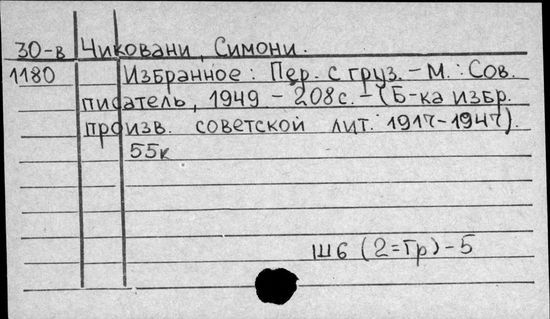 30-в Чиковани, Симони.
1180 Избранное: Пер. с груз. – М.: Сов.
писатель, 1949 – 208с. – (Б-ка избр.
произв. советской лит. 1917-1947).
55к
Ш6 (2=Гр)-5